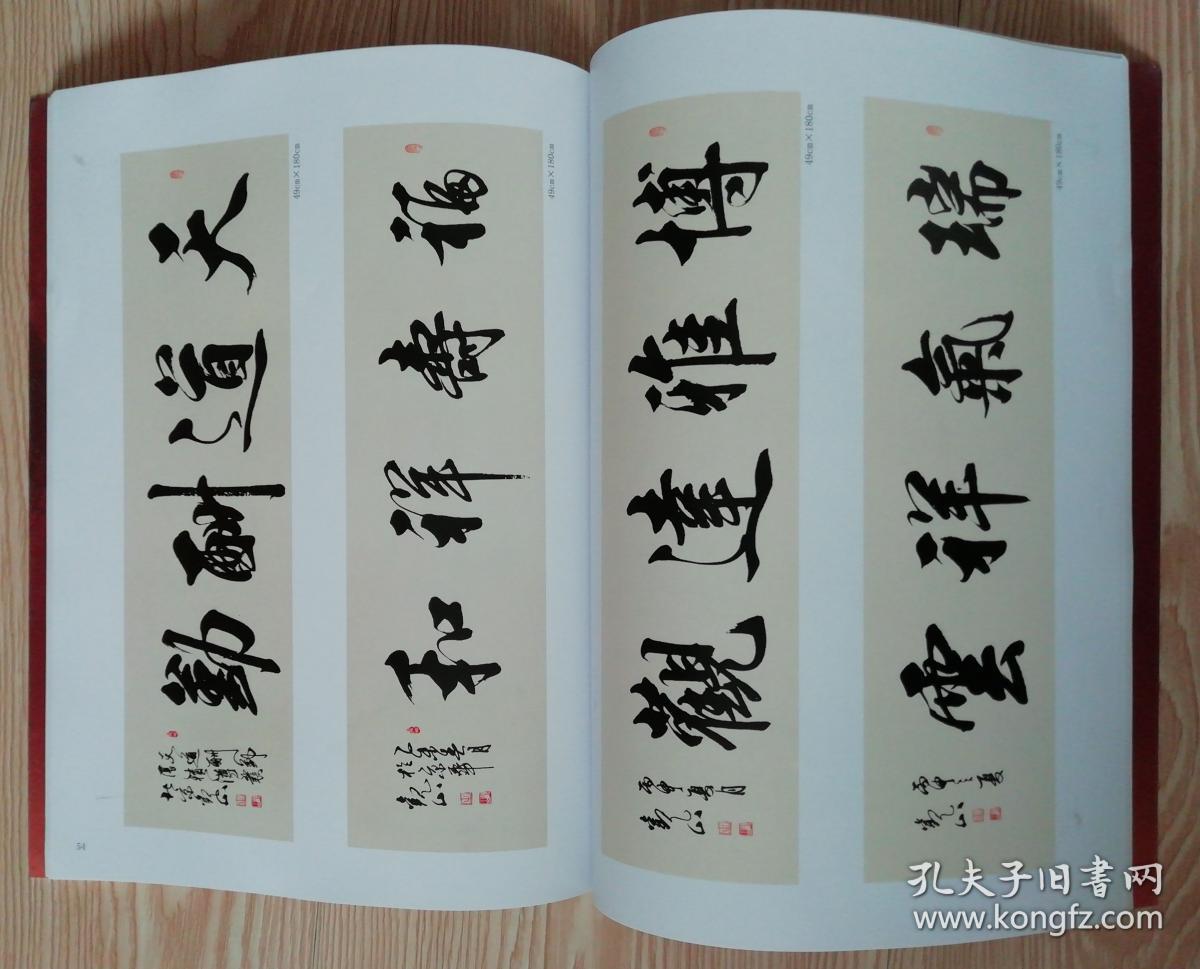 天道酬勤
49cm×180cm
福壽祥和
49cm×180cm
博雅達觀
丙申夏月
49cm×180cm
瑞氣祥雲
丙申之夏
49cm×180cm
52
孔夫子旧书网
www.kongfz.com